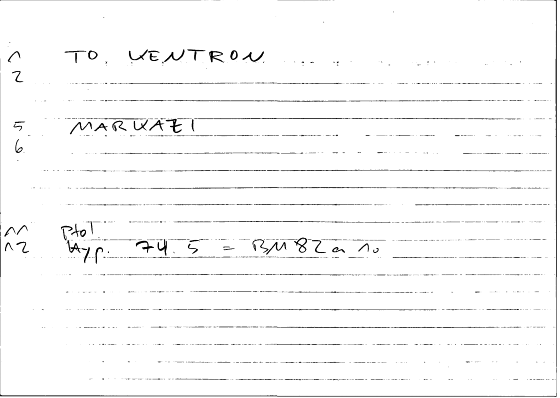 1 TO KENTRON
2
5 MARKAZI
6
11 Ptol
12 Hyp. 74.5 = BM82a 10